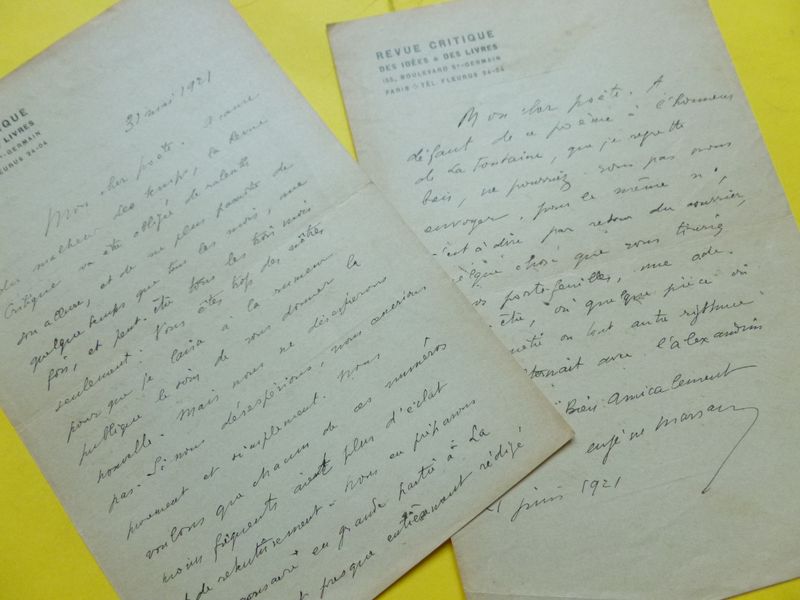 QUE
LIVRES
T-GERMAIN
FLEURUS 24-04
31 mai 1921
Mon cher poète. Devant
le malheur des temps, la Revue
Critique va être obligée de ralentir
son allure, et de ne plus paraître de
quelque temps que tous les mois, une
fois, et peut-être tous les trois mois
seulement. Vous êtes trop des nôtres
pour que je laisse à la rumeur
publique le soin de vous donner la
nouvelle. Mais nous ne désespérons
pas. Si nous désespérions, nous cesserions
purement et simplement. Nous
voulons que chacun de ces numéros
moins fréquents ait plus d'éclat
et de retentissement. Nous en préparons
consacré en grande partie à La
presque entièrement rédigé
REVUE CRITIQUE
DES IDÉES & DES LIVRES
155, BOULEVARD ST-GERMAIN
PARIS TÉL. FLEURUS 24-04
Mon cher poète. A
défaut de ce poème à l'honneur
de La Fontaine, que je regrette
bien, ne pourriez-vous pas nous
envoyer, pour le même n°,
c'est à dire par retour du courrier,
quelque chose que vous tireriez
portefeuilles, une ode
où quelque pièce où
ou tout autre rythme
avec l'alexandrin
Bien amicalement
eugène Marsan
juin 1921